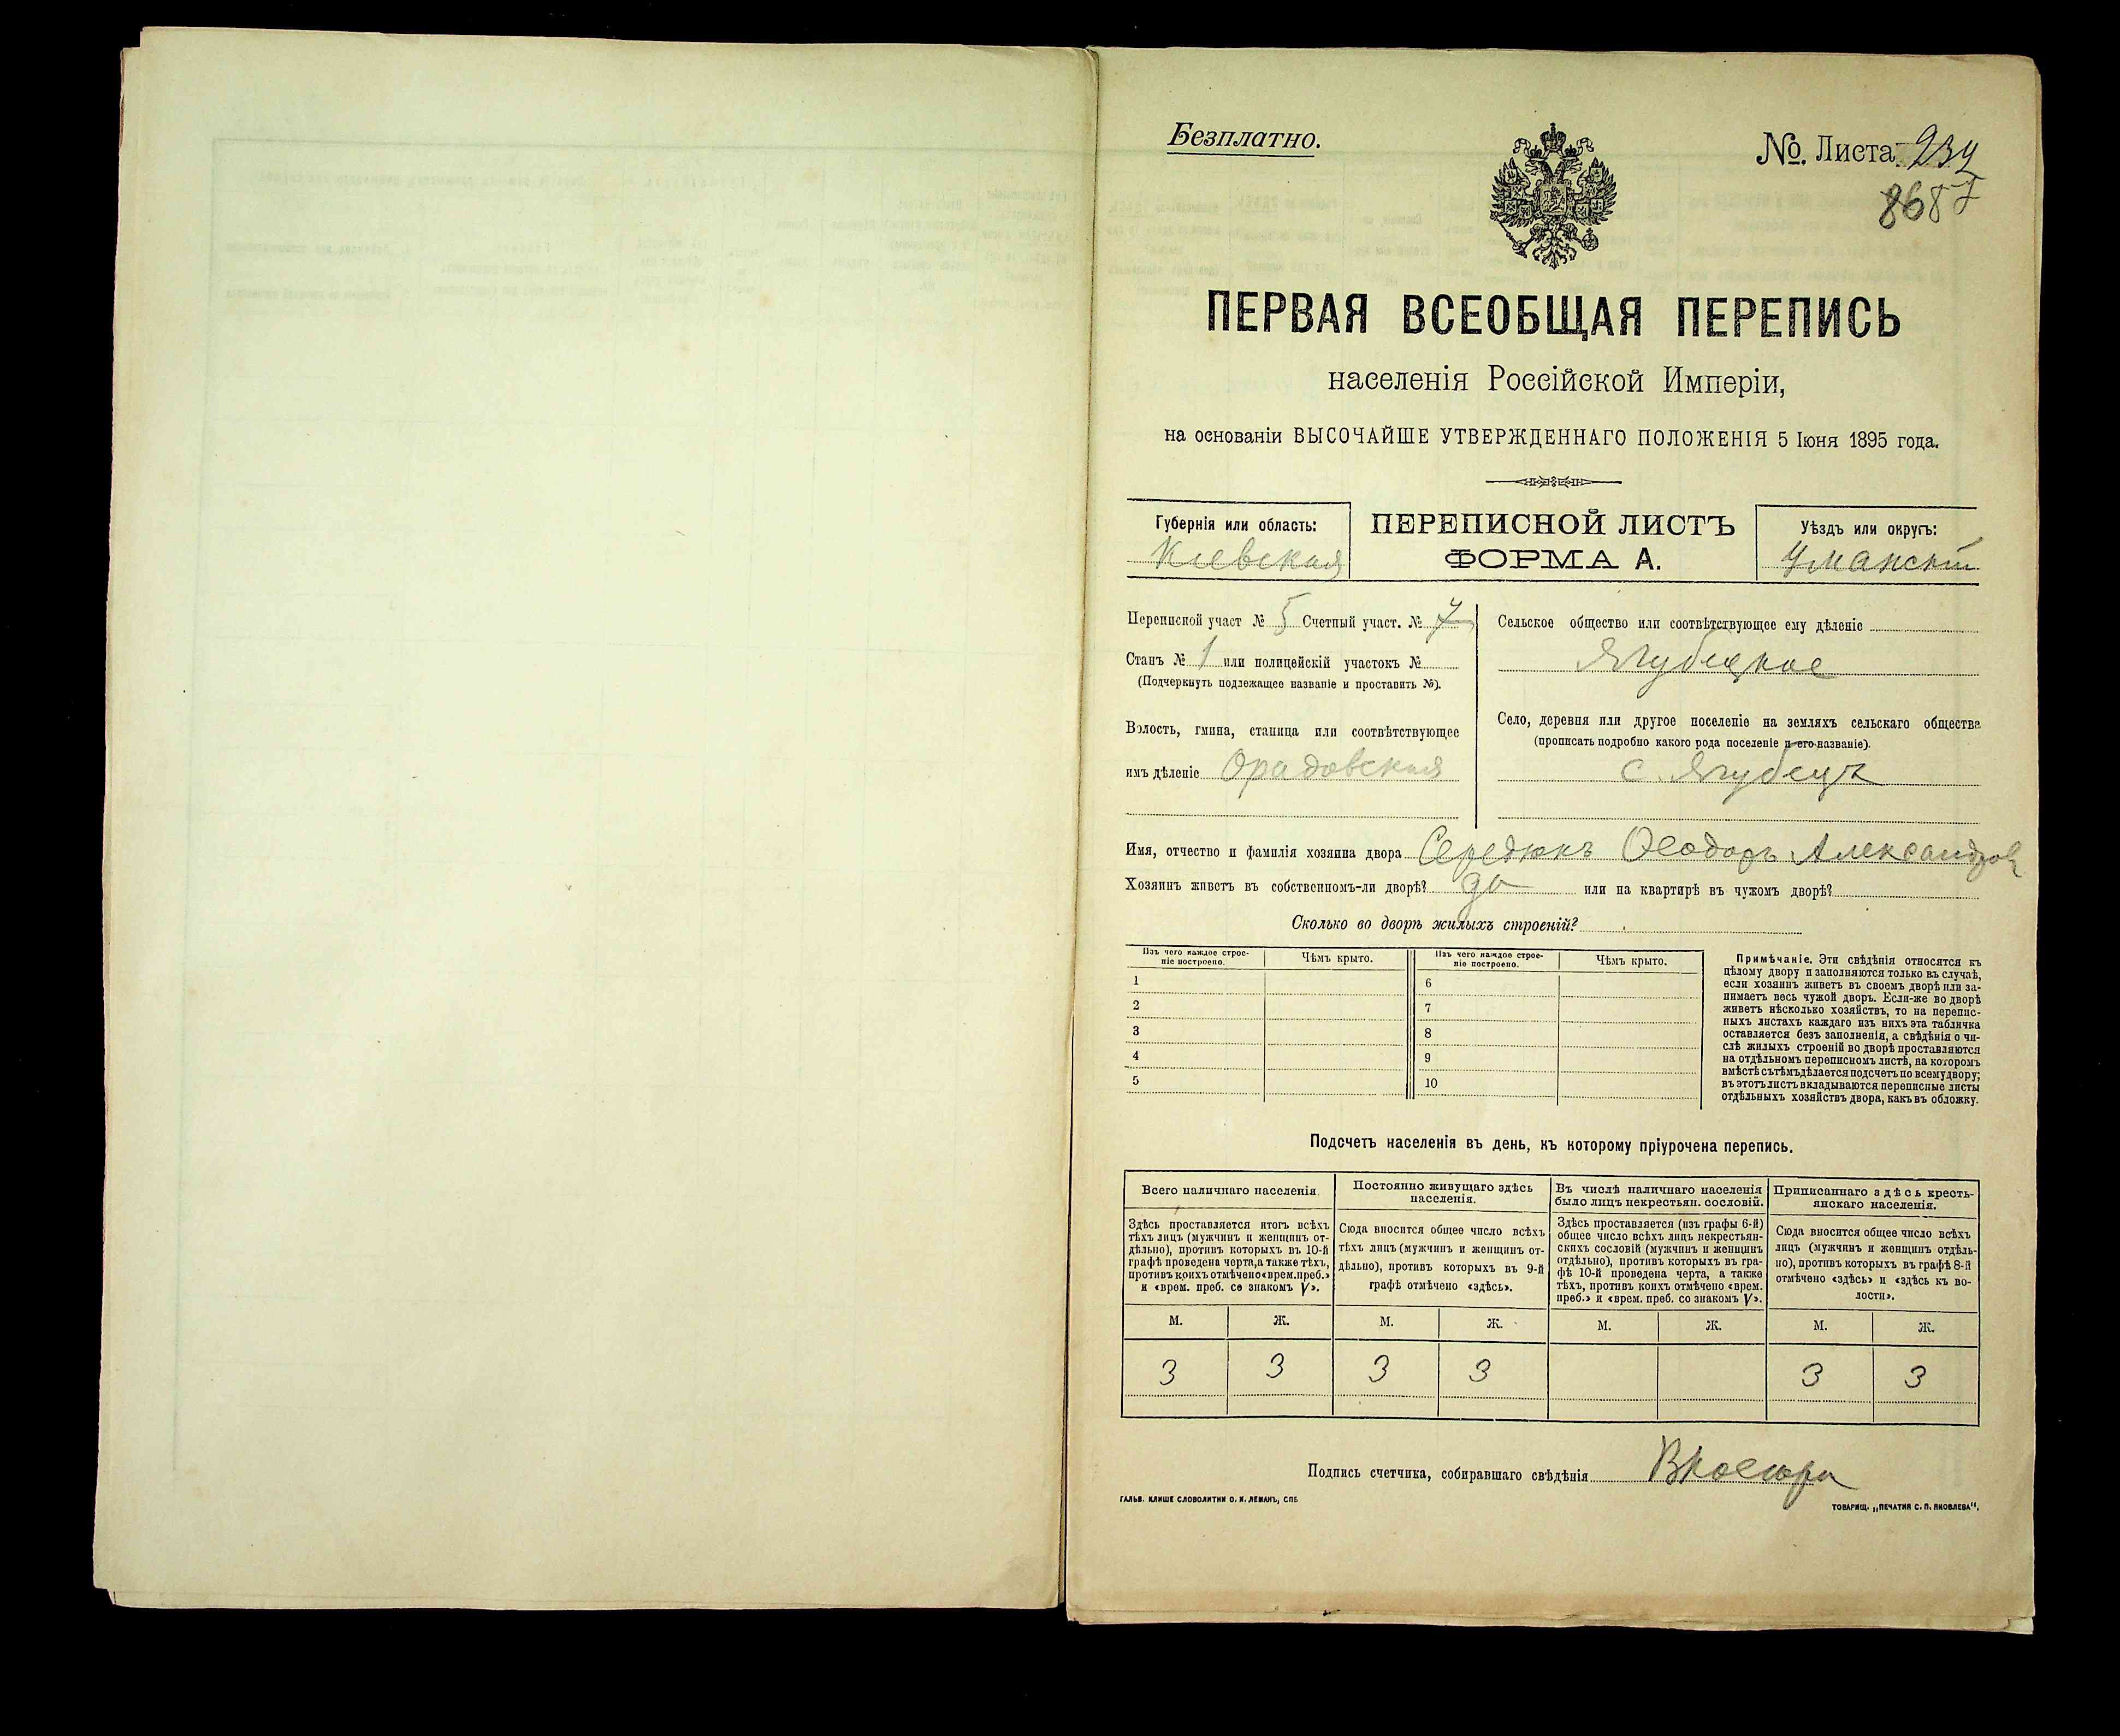 Безплатно.
№. Листа 234
8687
ПЕРВАЯ ВСЕОБЩАЯ ПЕРЕПИСЬ
населенія Россійской Имперіи,
на основаніи ВЫСОЧАЙШЕ УТВЕРЖДЕННАГО ПОЛОЖЕНІЯ 5 Іюня 1895 года.
Губернія или область:
Кіевская
ПЕРЕПИСНОЙ ЛИСТЪ
ФОРМА А.
Уѣздъ или округъ:
Уманскій
Переписной участ № 5 Счетный участ. № 7
Станъ № 1 или полицейскій участокъ №
(Подчеркнуть подлежащее названіе и проставить №).
Волость, гмина, станица или соотвѣтствующее
имъ дѣленіе Орадовская
Сельское общество или соотвѣтствующее ему дѣленіе
Ягубецкое
Село, деревня или другое поселеніе на земляхъ сельскаго общества
(прописать подробно какого рода поселеніе и его названіе).
с. Ягубецъ
Имя, отчество и фамилія хозяина двора Середюкъ Ѳеодоръ Александров
Хозяинъ живетъ въ собственномъ-ли дворѣ? да или на квартирѣ въ чужомъ дворѣ?
Сколько во дворѣ жилыхъ строеній?
Изъ чего каждое строе-
ніе построено.
Чѣмъ крыто.
Изъ чего каждое строе-
ніе построено.
Чѣмъ крыто.
1 6
2 7
3 8
4 9
5 10
Примѣчаніе. Эти свѣдѣнія относятся къ
цѣлому двору и заполняются только въ случаѣ,
если хозяинъ живетъ въ своемъ дворѣ или за-
нимаетъ весь чужой дворъ. Если-же во дворѣ
живетъ нѣсколько хозяйствъ, то на перепис-
ныхъ листахъ каждаго изъ нихъ эта табличка
оставляется безъ заполненія, а свѣдѣнія о чи-
слѣ жилыхъ строеній во дворѣ проставляются
на отдѣльномъ переписномъ листѣ, на которомъ
вмѣстѣ съ тѣмъ дѣлается подсчетъ по всему двору;
въ этотъ листъ вкладываются переписные листы
отдѣльныхъ хозяйствъ двора, какъ въ обложку.
Подсчетъ населенія въ день, къ которому пріурочена перепись.
Всего наличнаго населенія.
Здѣсь проставляется итогъ всѣхъ
тѣхъ лицъ (мужчинъ и женщинъ от-
дѣльно), противъ которыхъ въ 10-й
графѣ проведена черта, а также тѣхъ,
противъ коихъ отмѣчено «врем. преб.»
и «врем. преб. со знакомъ V».
Постоянно живущаго здѣсь
населенія.
Сюда вносится общее число всѣхъ
тѣхъ лицъ (мужчинъ и женщинъ от-
дѣльно), противъ которыхъ въ 9-й
графѣ отмѣчено «здѣсь».
Въ числѣ наличнаго населенія
было лицъ некрестьян. сословій.
Здѣсь проставляется (изъ графы 6-й)
общее число всѣхъ лицъ некрестьян-
скихъ сословій (мужчинъ и женщинъ
отдѣльно), противъ которыхъ въ гра-
фѣ 10-й проведена черта, а также
тѣхъ, противъ коихъ отмѣчено «врем.
преб.» и «врем. преб. со знакомъ V».
Приписаннаго здѣсь кресть-
янскаго населенія.
Сюда вносится общее число всѣхъ
лицъ (мужчинъ и женщинъ отдѣль-
но), противъ которыхъ въ графѣ 8-й
отмѣчено «здѣсь» и «здѣсь къ во-
лости».
М. Ж. М. Ж. М. Ж. М. Ж.
3 3 3 3 3 3
Подпись счетчика, собиравшаго свѣдѣнія
ГАЛЬВ. КЛИШЕ СЛОВОЛИТНИ О. И. ЛЕМАНЪ, СПБ
ТОВАРИЩ. „ПЕЧАТНЯ С. П. ЯКОВЛЕВА“.